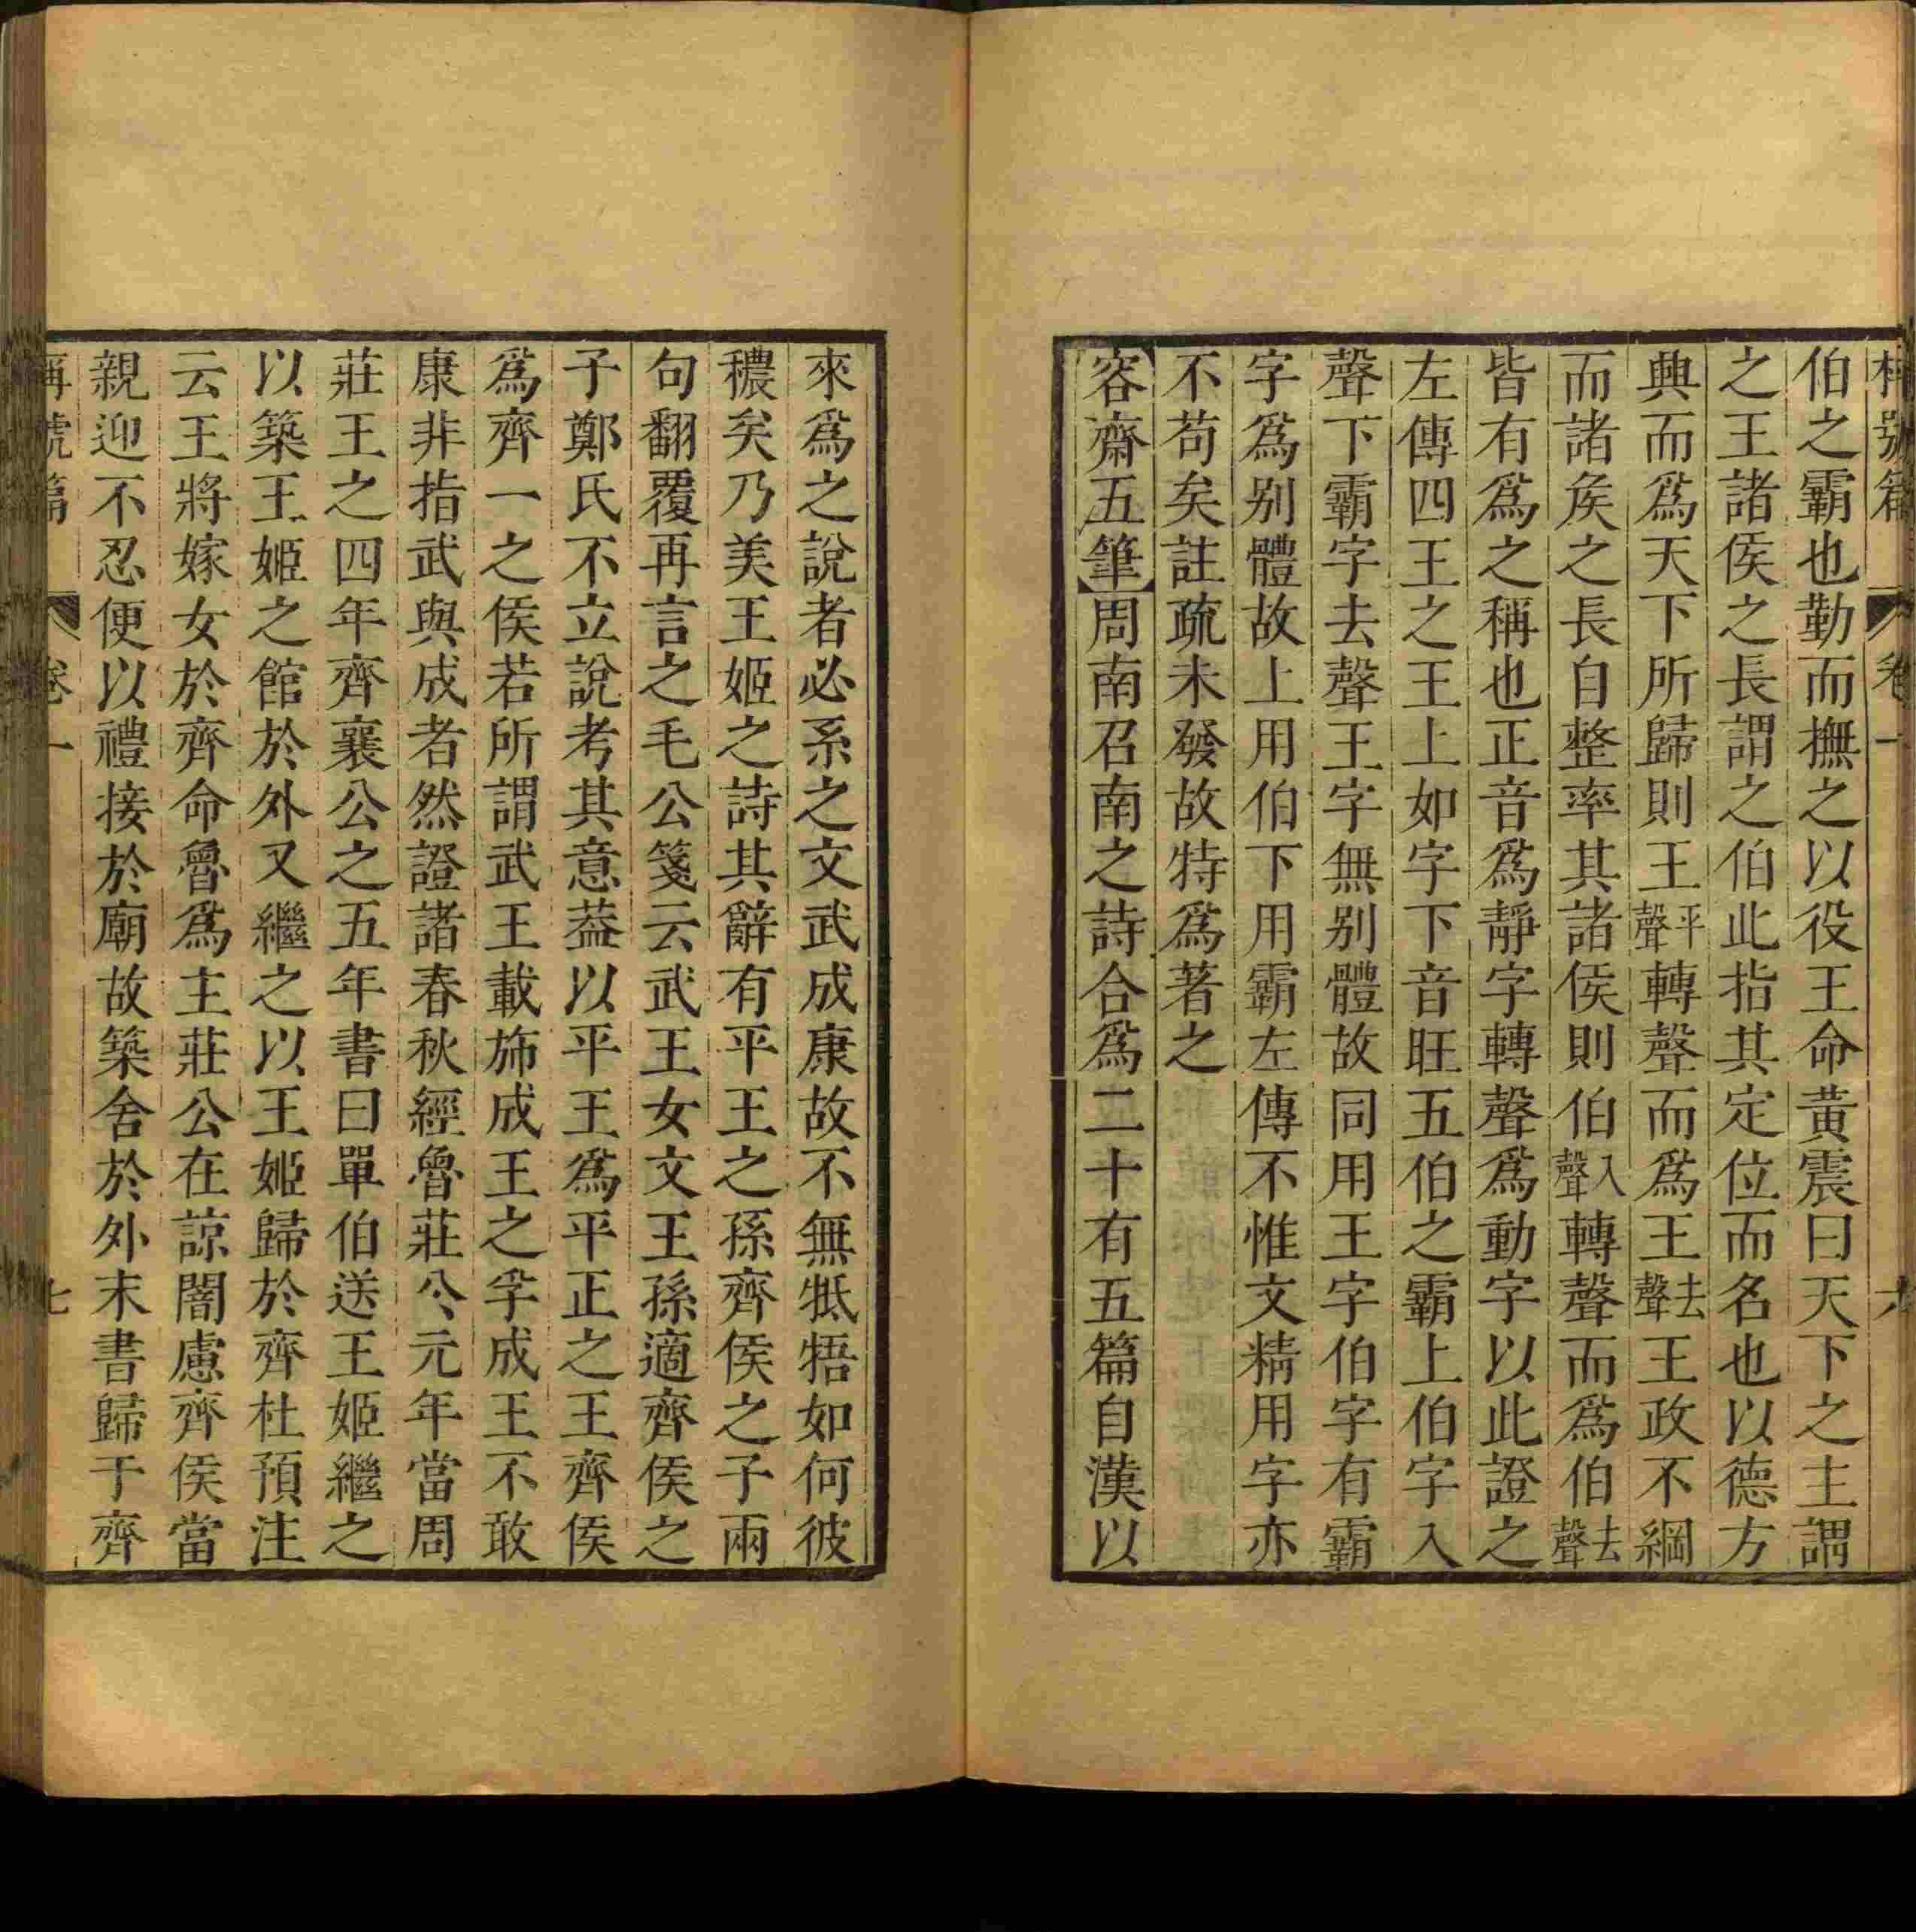 稱號篇 卷一 六
伯之霸也勤而撫之以役王命黃震曰天下之主謂
之王諸侯之長謂之伯此指其定位而名也以德方
興而為天下所歸則王平聲轉聲而為王去聲王政不綱
而諸矦之長自整率其諸侯則伯入聲轉聲而為伯去聲
皆有為之稱也正音為靜字轉聲為動字以此證之
左傳四王之王上如字下音旺五伯之霸上伯字入
聲下霸字去聲王字無别體故同用王字伯字有霸
字為别體故上用伯下用霸左傳不惟文精用字亦
不苟矣註疏未發故特為著之
容齋五筆周南召南之詩合為二十有五篇自漢以
來為之說者必系之文武成康故不無牴牾如何彼
穠矣乃美王姬之詩其辭有平王之孫齊侯之子兩
句翻覆再言之毛公箋云武王女文王孫適齊侯之
子鄭氏不立說考其意葢以平王為平正之王齊侯
為齊一之侯若所謂武王載斾成王之孚成王不敢
康非指武與成者然證諸春秋經魯莊公元年當周
莊王之四年齊襄公之五年書曰單伯送王姬繼之
以築王姬之館於外又繼之以王姬歸於齊杜預注
云王將嫁女於齊命魯為主莊公在諒闇慮齊侯當
親迎不忍便以禮接於廟故築舍於外末書歸于齊
稱號篇 卷一 七